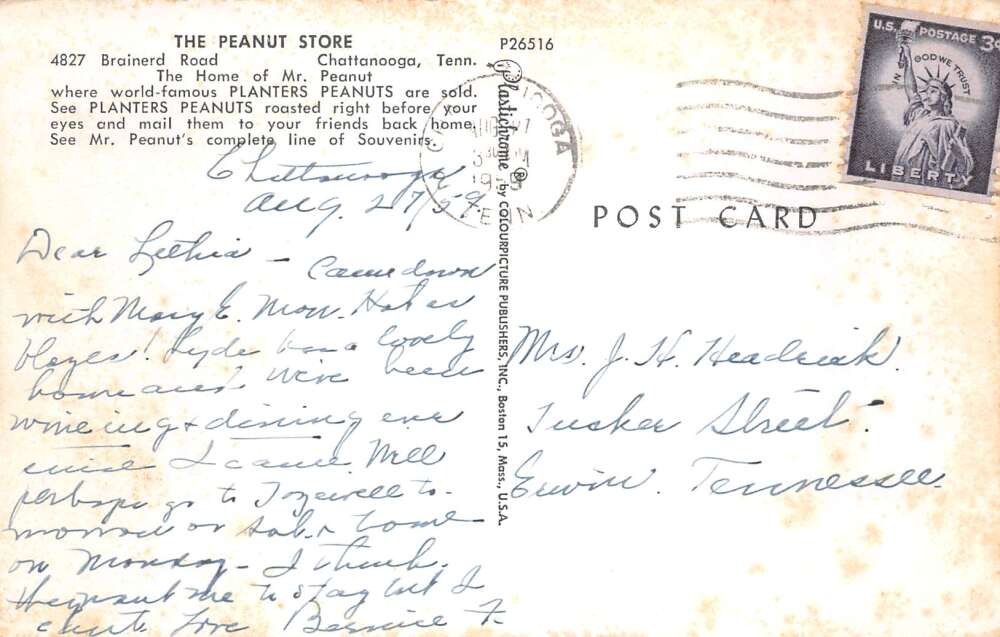 THE PEANUT STORE
4827 Brainerd Road Chattanooga, Tenn.
The Home of Mr. Peanut
where world-famous PLANTERS PEANUTS are sold.
See PLANTERS PEANUTS roasted right before your
eyes and mail them to your friends back home.
See Mr. Peanut's complete line of Souvenirs.
Chattanooga
Aug. 27/59.
Dear Lethia —
Came down
with Mary E. Mon. Hot as
blazes! Lyde has a lovely
home and we've been
wineing & dining ever
since I came. Will
perhaps go to Tazewell to-
morrow or Sat. & home
on Monday — I think.
They want me to stay but I
can't. Love Bernice F.
P26516
Plastichrome ® by COLOURPICTURE PUBLISHERS, INC., Boston 15, Mass., U.S.A.
TENN
POST CARD
U.S. POSTAGE 3¢
IN GOD WE TRUST
LIBERTY
Mrs. J. H. Headrick.
Tucker Street.
Erwin. Tennessee.